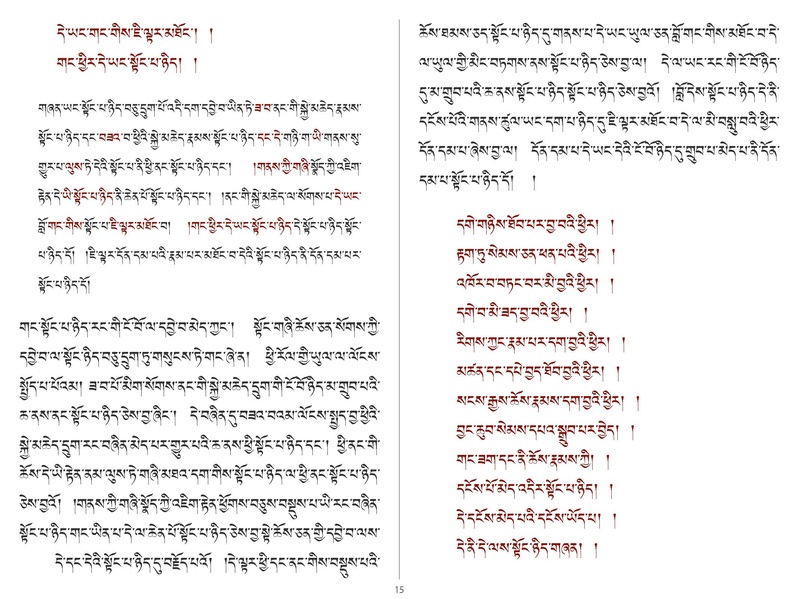 དེ་ཡང་གང་གིས་ཇི་ལྟར་མཐོང་། །
གང་ཕྱིར་དེ་ཡང་སྟོང་པ་ཉིད། །
གཞན་ཡང་སྟོང་པ་ཉིད་བཅུ་དྲུག་པོ་འདི་དག་དབྱེ་བ་ཡིན་ཏེ་ཟ་བ་ནང་གི་སྐྱེ་མཆེད་རྣམས་
སྟོང་པ་ཉིད་དང་བཟའ་བ་ཕྱིའི་སྐྱེ་མཆེད་རྣམས་སྟོང་པ་ཉིད་དང་དེ་གཉི་ག་ཡི་གནས་སུ་
གྱུར་པ་ལུས་ཏེ་དེའི་སྟོང་པ་ནི་ཕྱི་ནང་སྟོང་པ་ཉིད་དང་། །གནས་ཀྱི་གཞི་སྣོད་ཀྱི་འཇིག་
རྟེན་དེ་ཡི་སྟོང་པ་ཉིད་ནི་ཆེན་པོ་སྟོང་པ་ཉིད་དང་། །ནང་གི་སྐྱེ་མཆེད་ལ་སོགས་པ་དེ་ཡང་
བློ་གང་གིས་སྟོང་པ་ཇི་ལྟར་མཐོང་བ། །གང་ཕྱིར་དེ་ཡང་སྟོང་པ་ཉིད་དེ་སྟོང་པ་ཉིད་སྟོང་
པ་ཉིད་དོ། །ཇི་ལྟར་དོན་དམ་པའི་རྣམ་པར་མཐོང་བ་དེའི་སྟོང་པ་ཉིད་ནི་དོན་དམ་པར་
སྟོང་པ་ཉིད་དོ།
གང་སྟོང་པ་ཉིད་རང་གི་ངོ་བོ་ལ་དབྱེ་བ་མེད་ཀྱང་། སྟོང་གཞི་ཆོས་ཅན་སོགས་ཀྱི་
དབྱེ་བ་ལ་སྟོང་ཉིད་བཅུ་དྲུག་ཏུ་གསུངས་ཏེ་གང་ཞེ་ན། ཕྱི་རོལ་གྱི་ཡུལ་ལ་ལོངས་
སྤྱོད་པ་པོའམ། ཟ་བ་པོ་མིག་སོགས་ནང་གི་སྐྱེ་མཆེད་དྲུག་གི་ངོ་བོ་ཉིད་མ་གྲུབ་པའི་
ཆ་ནས་ནང་སྟོང་པ་ཉིད་ཅེས་བྱ་ཞིང་། དེ་བཞིན་དུ་བཟའ་བའམ་ལོངས་སྤྱད་བྱ་ཕྱིའི་
སྐྱེ་མཆེད་དྲུག་རང་བཞིན་མེད་པར་གྱུར་པའི་ཆ་ནས་ཕྱི་སྟོང་པ་ཉིད་དང་། ཕྱི་ནང་གི་
ཆོས་དེ་ཡི་རྟེན་ནམ་ལུས་ཏེ་གཞི་མཐའ་དག་གིས་སྟོང་པ་ཉིད་ལ་ཕྱི་ནང་སྟོང་པ་ཉིད་
ཅེས་བྱའོ། །གནས་ཀྱི་གཞི་སྣོད་ཀྱི་འཇིག་རྟེན་ཕྱོགས་བཅུས་བསྡུས་པ་ཡི་རང་བཞིན་
སྟོང་པ་ཉིད་གང་ཡིན་པ་དེ་ལ་ཆེན་པོ་སྟོང་པ་ཉིད་ཅེས་བྱ་སྟེ་ཆོས་ཅན་གྱི་དབྱེ་བ་ལས་
དེ་དང་དེའི་སྟོང་པ་ཉིད་དུ་བརྗོད་པའོ། །དེ་ལྟར་ཕྱི་དང་ནང་གིས་བསྡུས་པའི་
ཆོས་ཐམས་ཅད་སྟོང་པ་ཉིད་དུ་གནས་པ་དེ་ཡང་ཡུལ་ཅན་བློ་གང་གིས་མཐོང་བ་དེ་
ལ་ཡུལ་གྱི་མིང་བཏགས་ནས་སྟོང་པ་ཉིད་ཅེས་བྱ་ལ། དེ་ལ་ཡང་རང་གི་ངོ་བོ་ཉིད་
དུ་མ་གྲུབ་པའི་ཆ་ནས་སྟོང་པ་ཉིད་སྟོང་པ་ཉིད་ཅེས་བྱའོ། །བློ་དེས་སྟོང་པ་ཉིད་དེ་ནི་
དངོས་པོའི་གནས་ཚུལ་ཡང་དག་པ་ཉིད་དུ་ཇི་ལྟར་མཐོང་བ་དེ་ལ་མི་བསླུ་བའི་ཕྱིར་
དོན་དམ་པ་ཞེས་བྱ་ལ། དོན་དམ་པ་དེ་ཡང་དེའི་ངོ་བོ་ཉིད་དུ་གྲུབ་པ་མེད་པ་ནི་དོན་
དམ་པ་སྟོང་པ་ཉིད་དོ། །
དགེ་གཉིས་ཐོབ་པར་བྱ་བའི་ཕྱིར། །
རྟག་ཏུ་སེམས་ཅན་ཕན་པའི་ཕྱིར། །
འཁོར་བ་བཏང་བར་མི་བྱའི་ཕྱིར། །
དགེ་བ་མི་ཟད་བྱ་བའི་ཕྱིར། །
རིགས་ཀྱང་རྣམ་པར་དག་བྱའི་ཕྱིར། །
མཚན་དང་དཔེ་བྱད་ཐོབ་བྱའི་ཕྱིར། །
སངས་རྒྱས་ཆོས་རྣམས་དག་བྱའི་ཕྱིར། །
བྱང་ཆུབ་སེམས་དཔའ་སྒྲུབ་པར་བྱེད། །
གང་ཟག་དང་ནི་ཆོས་རྣམས་ཀྱི། །
དངོས་པོ་མེད་འདིར་སྟོང་པ་ཉིད། །
དེ་དངོས་མེད་པའི་དངོས་ཡོད་པ། །
དེ་ནི་དེ་ལས་སྟོང་ཉིད་གཞན། །
15